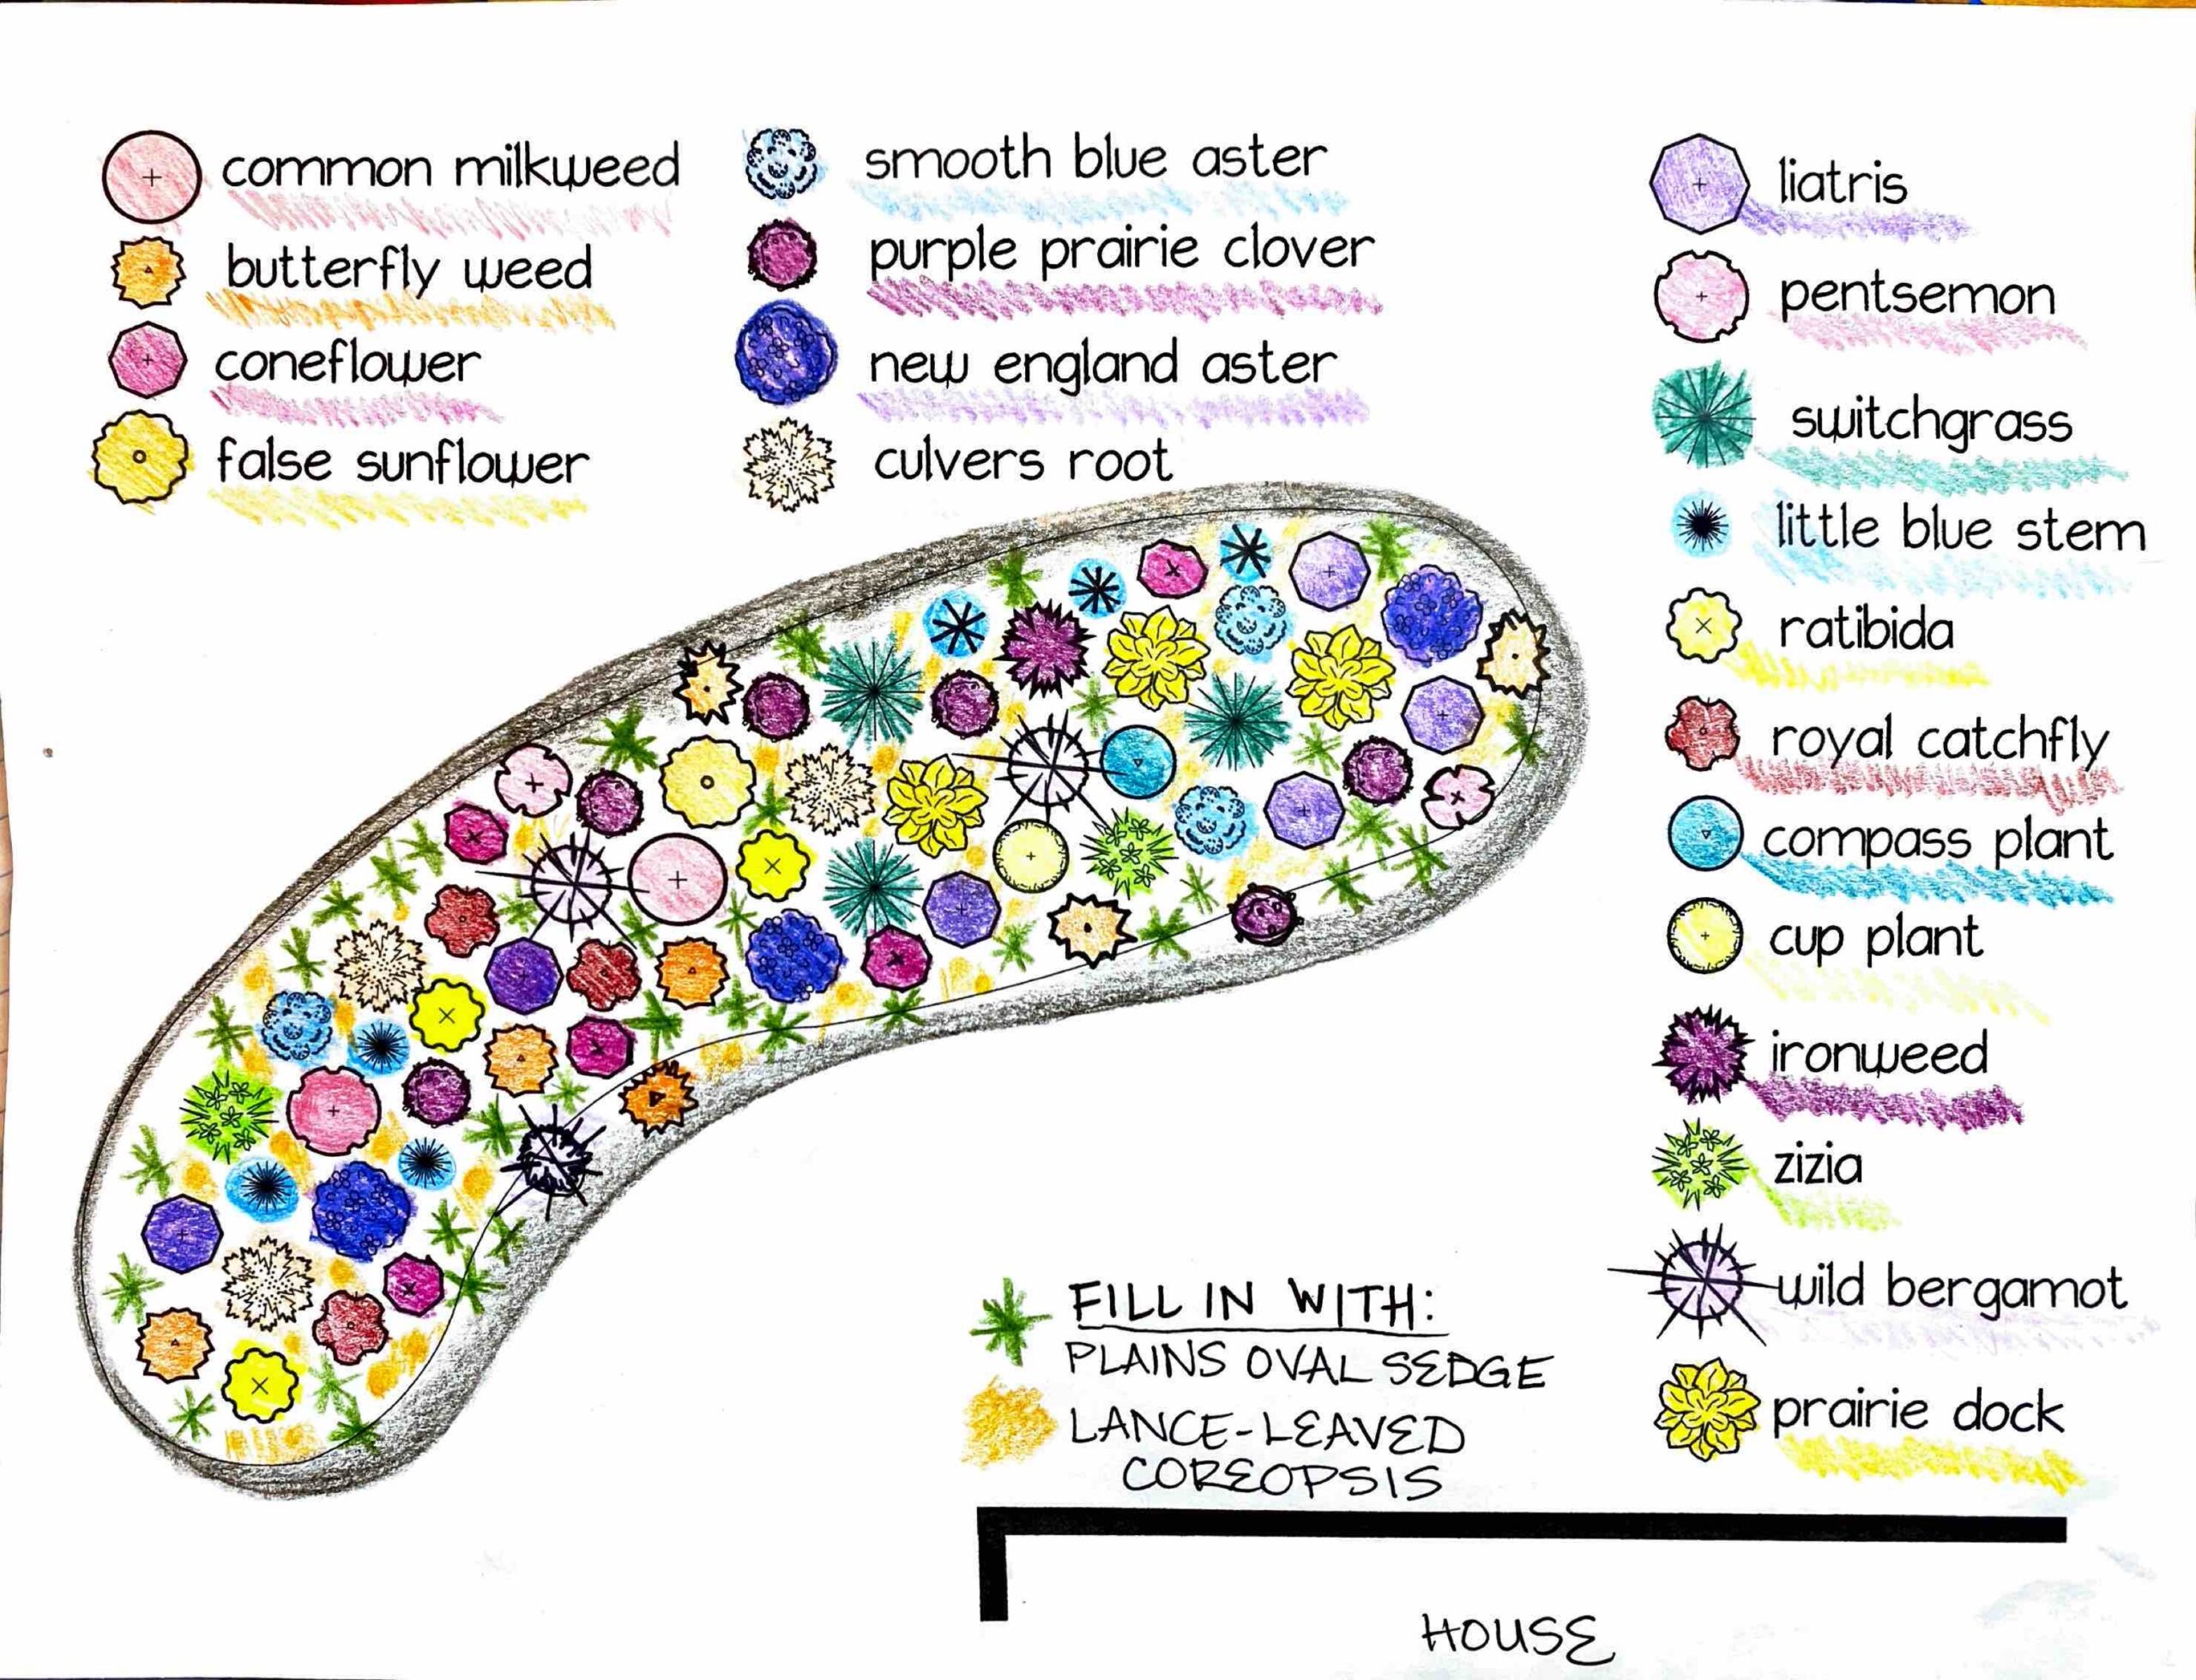 common milkweed
butterfly weed
coneflower
false sunflower
smooth blue aster
purple prairie clover
new england aster
culvers root
liatris
pentsemon
switchgrass
little blue stem
ratibida
royal catchfly
compass plant
cup plant
ironweed
zizia
wild bergamot
prairie dock
FILL IN WITH:
PLAINS OVAL SEDGE
LANCE-LEAVED
COREOPSIS
HOUSE